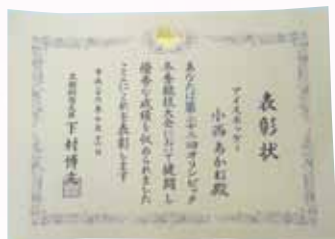 表彰状
アイスホッケー
小西あかね殿
あなたは第二十二回オリンピック
冬季競技大会において健闘し
優秀な成績を収められました
ここにこれを表彰します
平成二十六年
文部科学大臣 下村博文